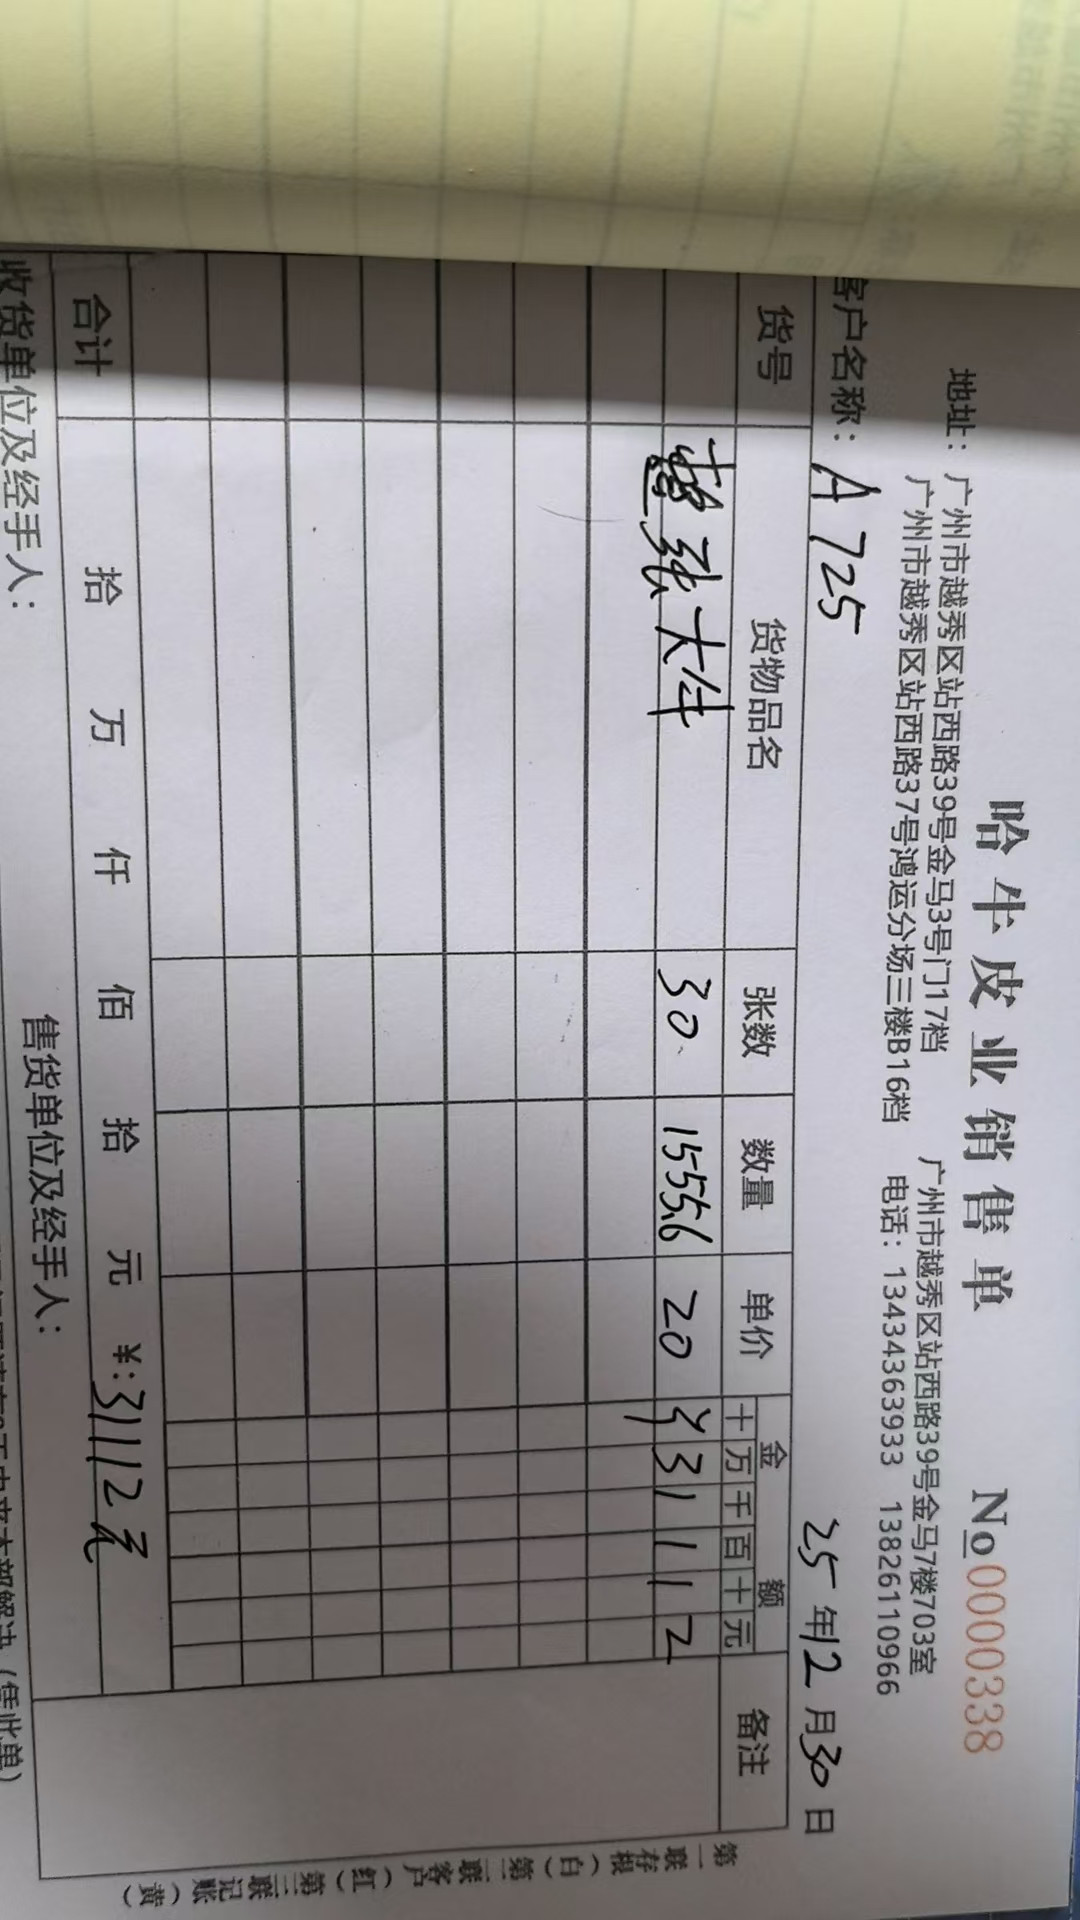 哈牛皮业销售单 No 0000338
地址：广州市越秀区站西路39号金马3号门17档 广州市越秀区站西路39号金马7楼703室
广州市越秀区站西路37号鸿运分场三楼B16档 电话：13434363933 13826110966
客户名称：A725 25年12月30日
货号 货物品名 张数 数量 单价 金额 备注
十 万 千 百 十 元
张大牛 30 1555.6 20 ¥ 3 1 1 1 2
合计 拾 万 仟 佰 拾 元 ¥：31112元
收货单位及经手人： 售货单位及经手人：
天内来本部解决（凭此单）
第一联存根（白）第二联客户（红）第三联记账（黄）